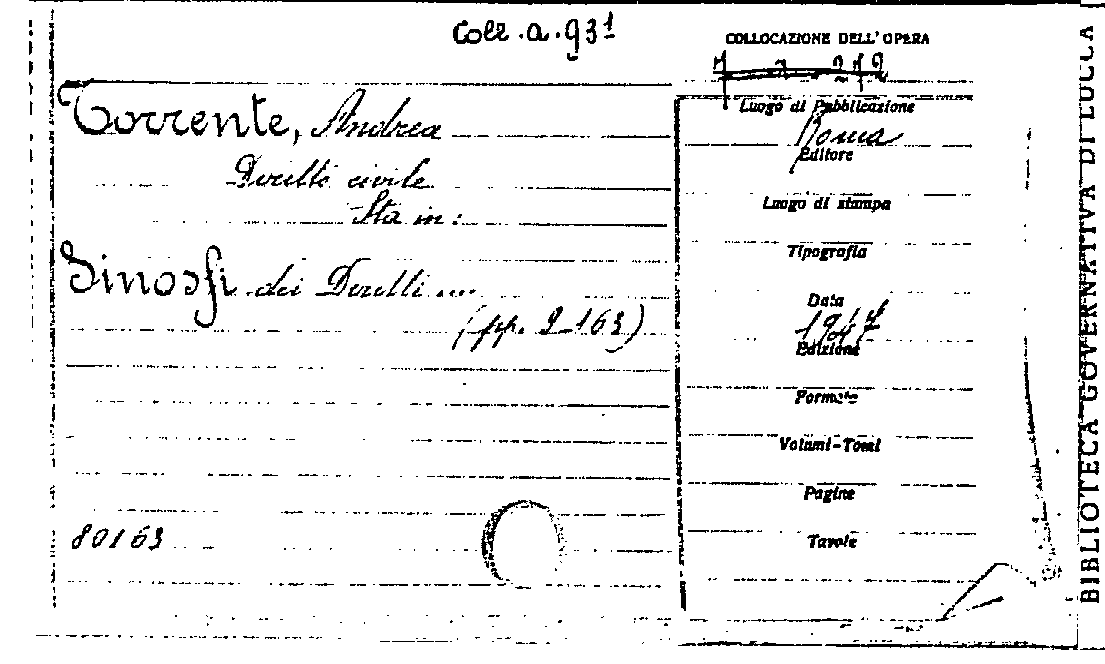 Coll.a.93¹
COLLOCAZIONE DELL'OPERA
Torrente, Andrea
Diritto civile
Sta in:
Sinossi dei Diritti ....
(pp. 9-163)
80163
Luogo di Pubblicazione
Roma
Editore
Luogo di stampa
Tipografia
Data
1947
Edizione
Formato
Volumi-Tomi
Pagine
Tavole
BIBLIOTECA GOVERNATIVA DI LUCCA